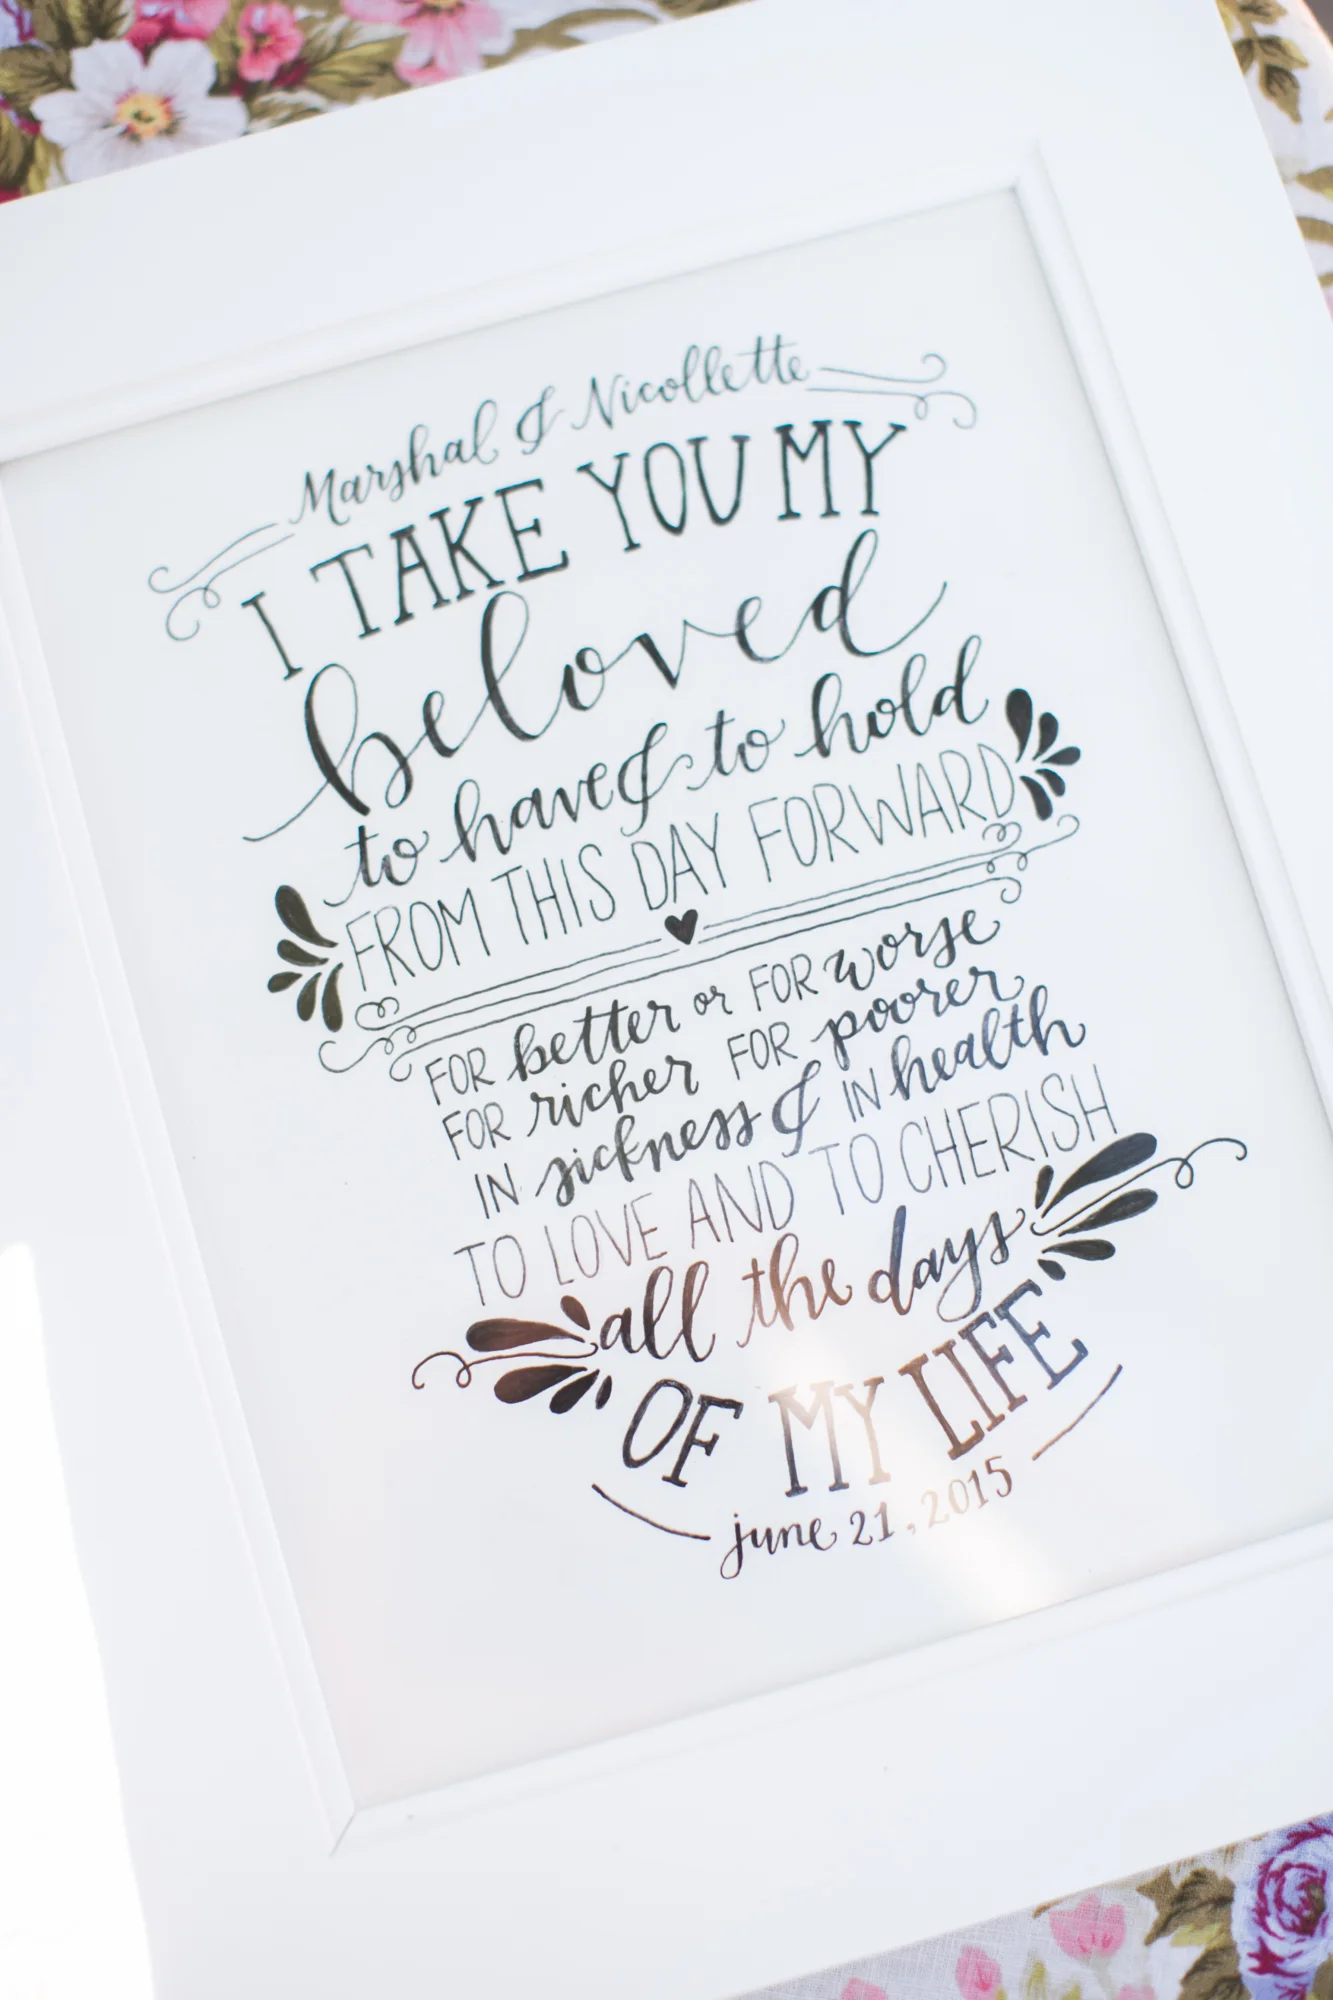 Marshal & Nicollette
I TAKE YOU MY
beloved
to have & to hold
FROM THIS DAY FORWARD
FOR better or FOR worse
FOR richer FOR poorer
IN sickness & IN health
TO LOVE AND TO CHERISH
all the days
OF MY LIFE
june 21, 2015